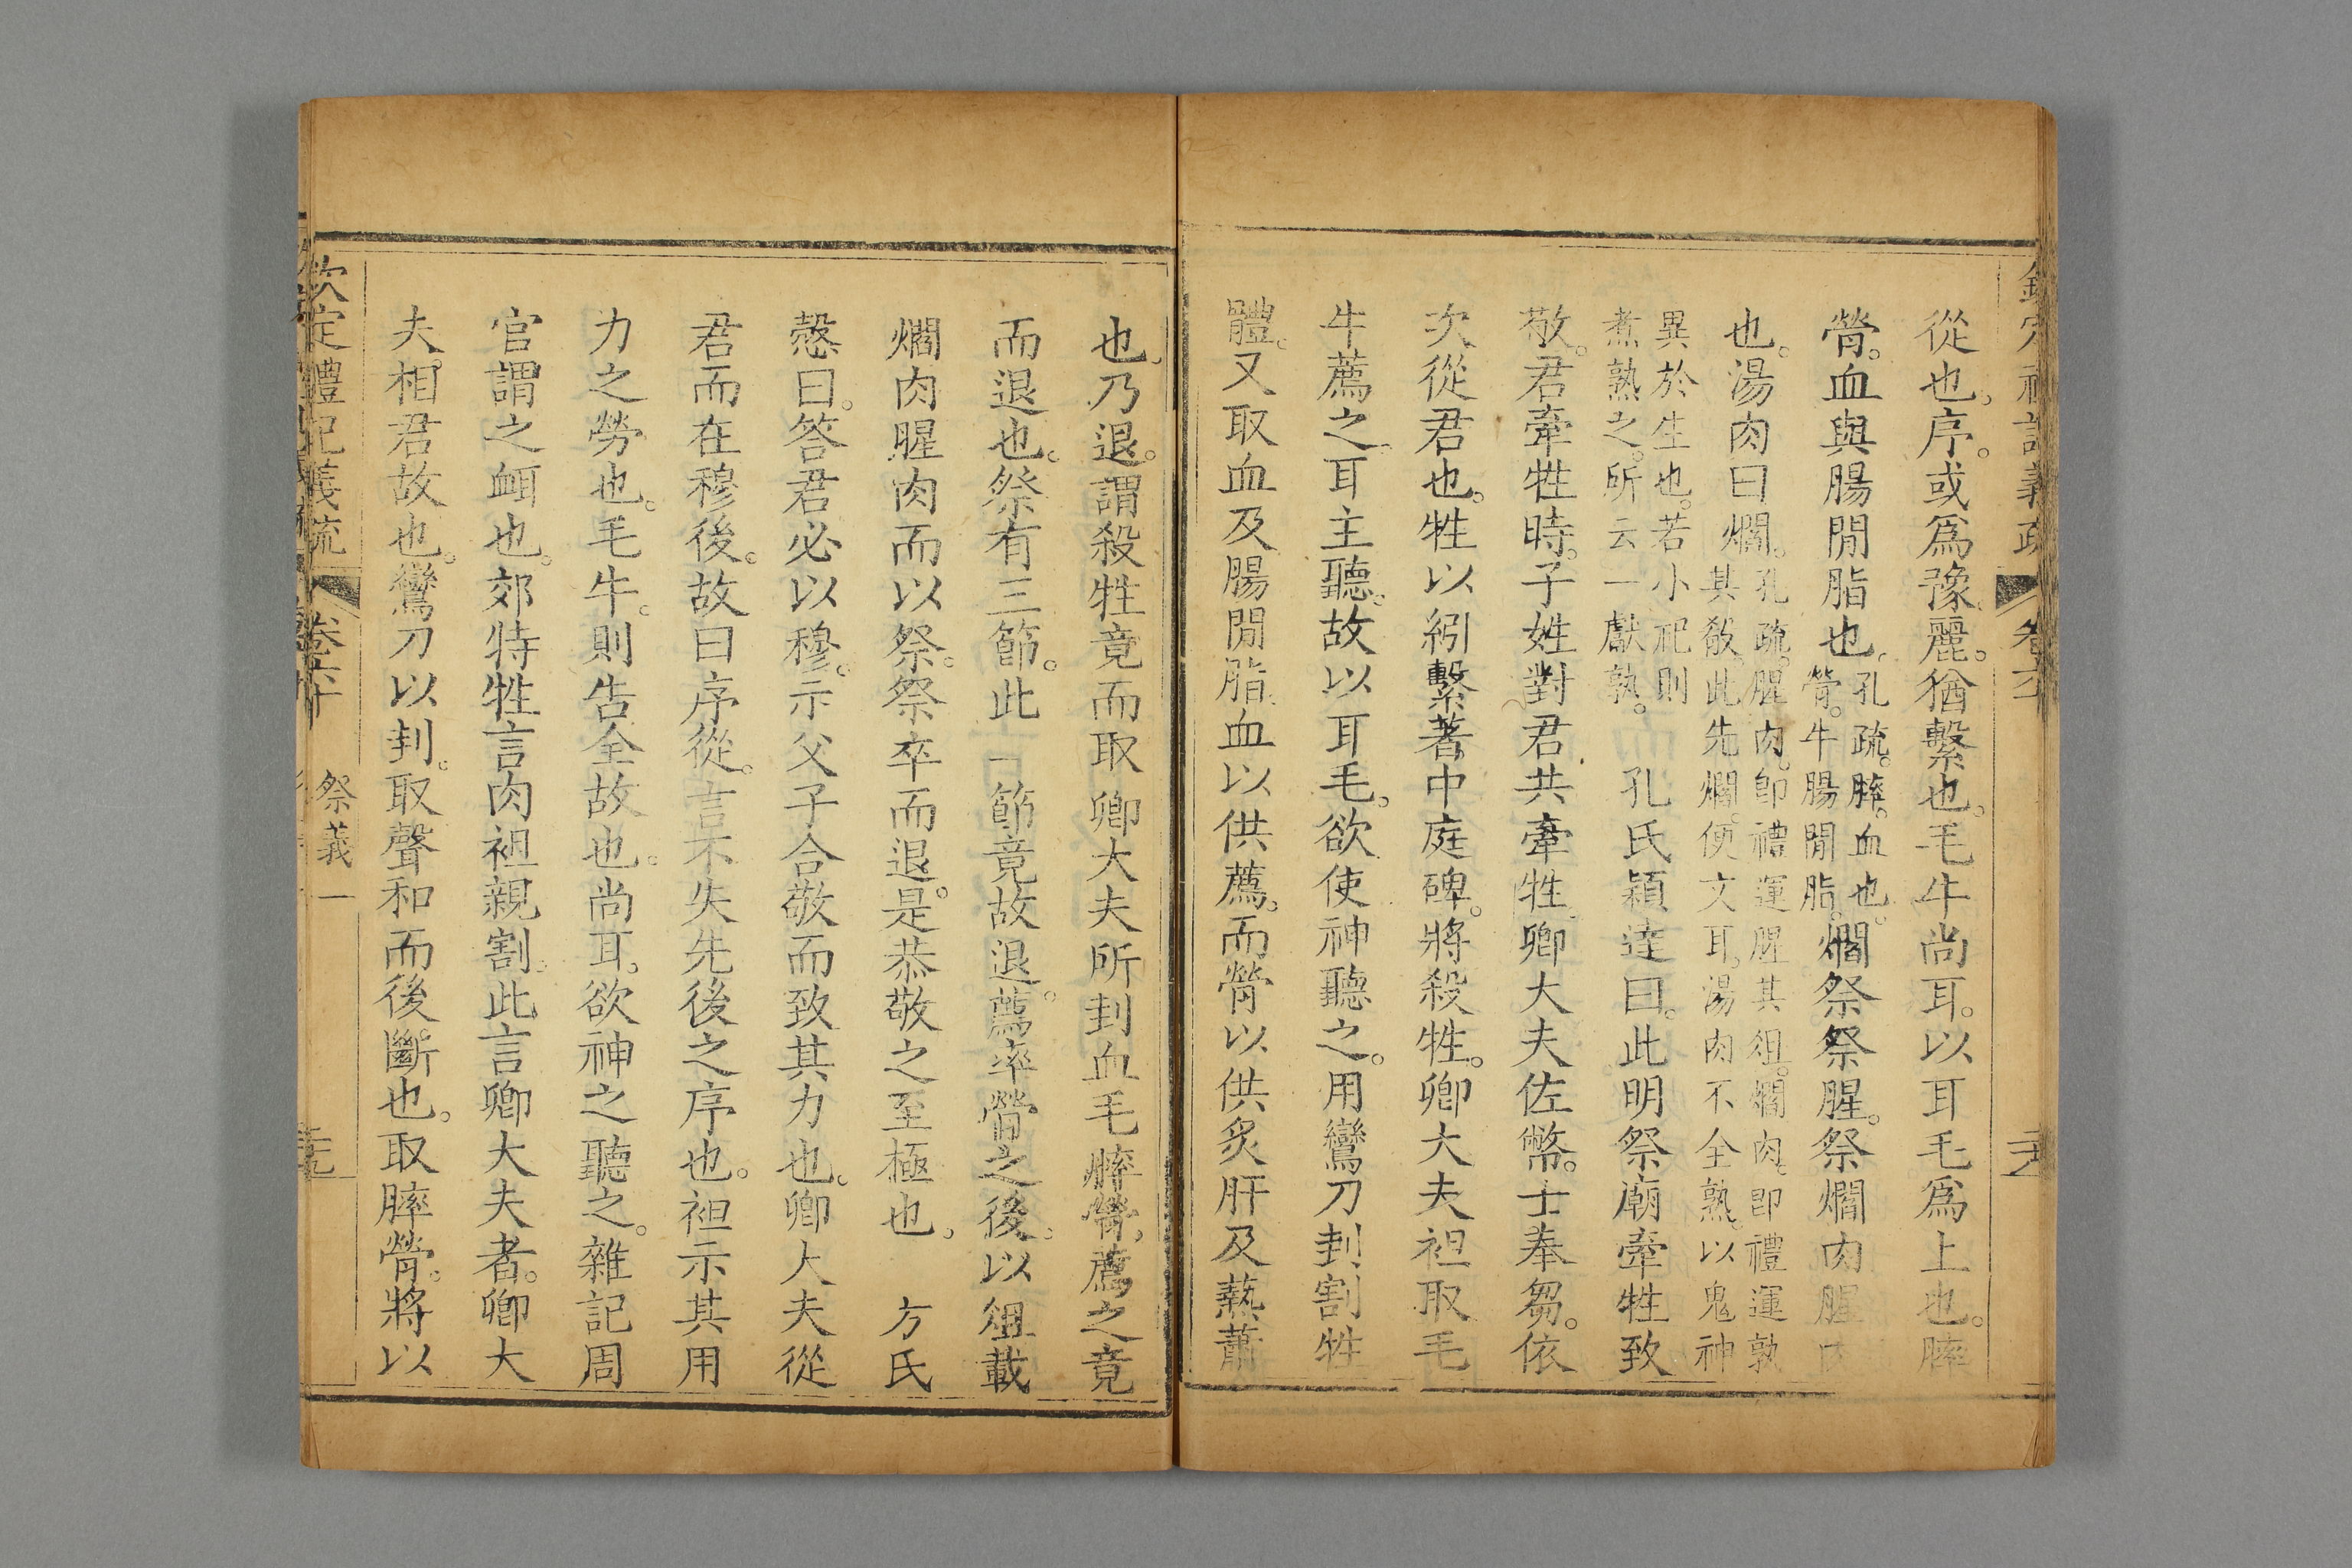 從也。序。或爲豫。麗。猶繫也。毛牛尚耳。以耳毛爲上也。膟
膋。血與腸閒脂也。
孔疏。膟。血也。
膋。牛腸閒脂。
爓祭祭腥。祭爓肉腥肉
也。湯肉曰爓。
孔疏。腥肉。卽禮運腥其俎。爓肉。卽禮運孰
其殽。此先爓。便文耳。湯肉不全熟。以鬼神
異於生也。若小祀則
煮熟之。所云一獻孰。
孔氏穎達曰。此明祭廟牽牲致
敬。君牽牲時。子姓對君共牽牲。卿大夫佐幣。士奉芻。依
次從君也。牲以紖繫著中庭碑。將殺牲。卿大夫袒取毛
牛薦之。耳主聽。故以耳毛。欲使神聽之。用鸞刀刲割牲
體。又取血及腸閒脂。血以供薦。而膋以供炙肝及爇蕭
也。乃退。謂殺牲竟而取卿大夫所刲血毛膟膋。薦之竟
而退也。祭有三節。此一節竟故退。薦率膋之後。以俎載
爓肉腥肉而以祭。祭卒而退。是恭敬之至極也。 方氏
慤曰。答君必以穆。示父子合敬而致其力也。卿大夫從
君而在穆後。故曰序從。言不失先後之序也。袒示其用
力之勞也。毛牛。則告全故也。尚耳。欲神之聽之。雜記周
官謂之衈也。郊特牲言肉袒親割。此言卿大夫者。卿大
夫。相君故也。鸞刀以刲。取聲和而後斷也。取膟膋。將以
欽定禮記義疏 卷六十 祭義一